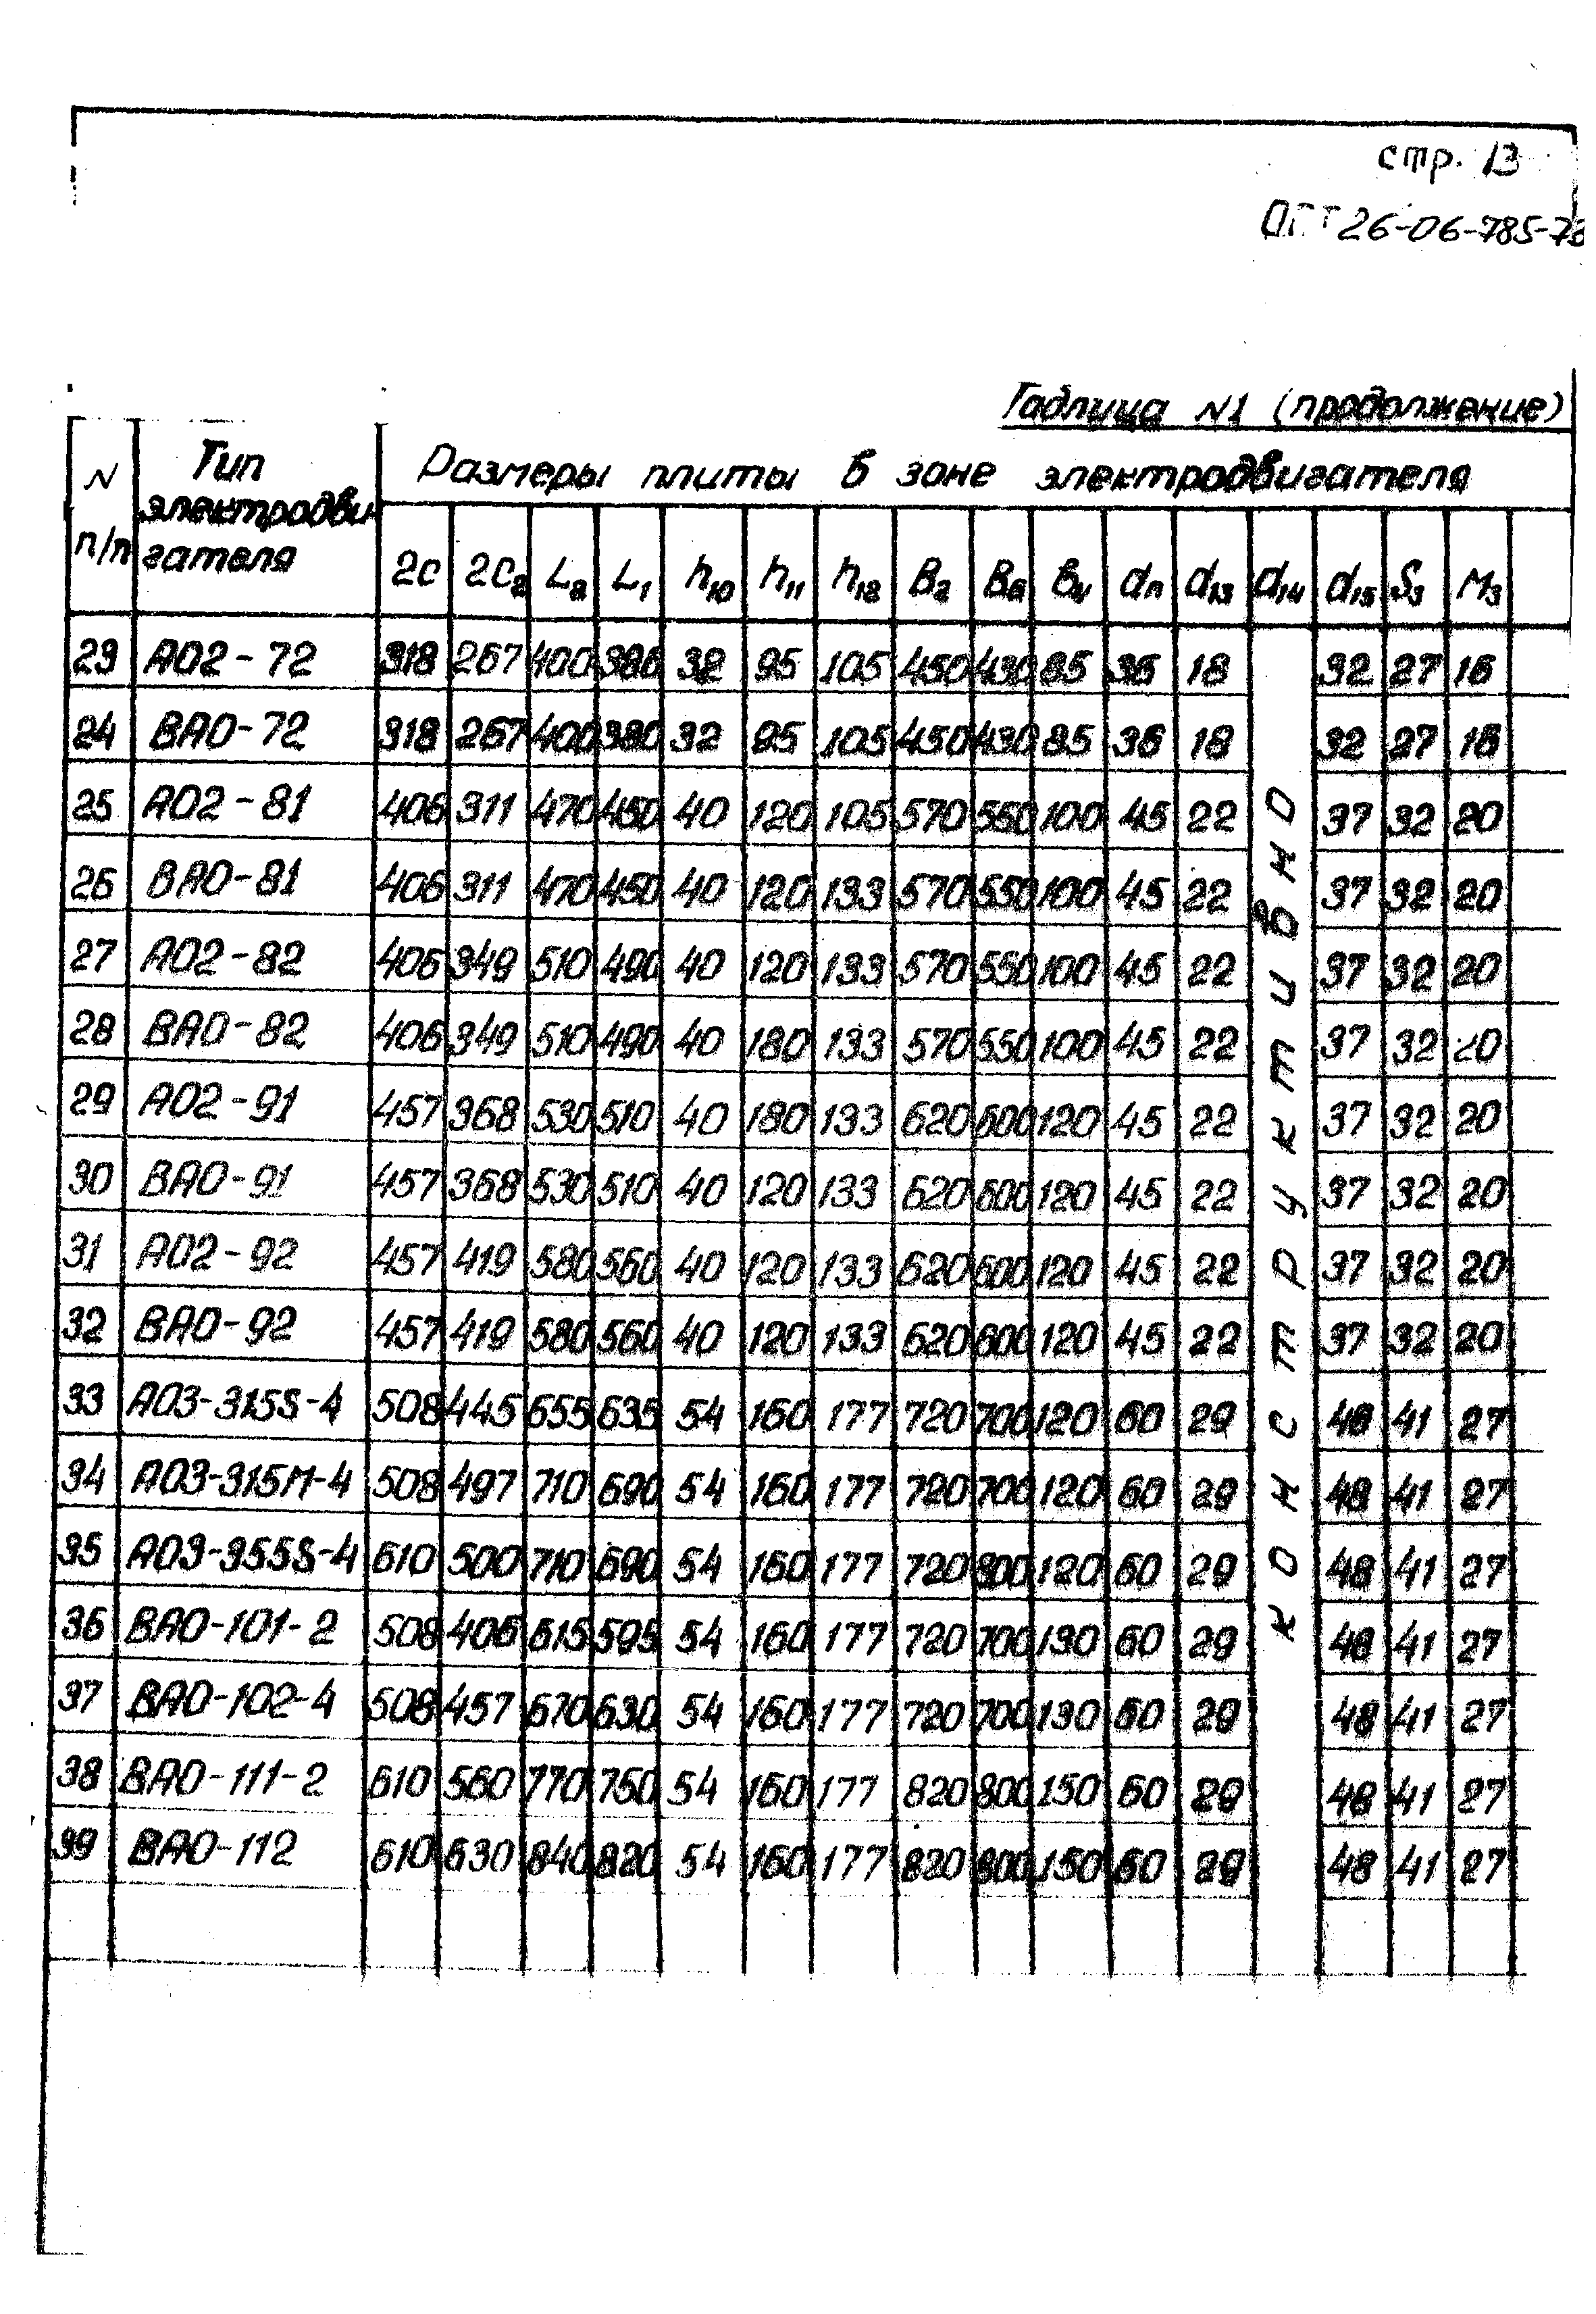 стр. 13
ОСТ 26-06-785-73
Таблица N1 (продолжение)
N п/п Тип электродвигателя Размеры плиты в зоне электродвигателя
2с 2с₂ L₂ L₁ h₁₀ h₁₁ h₁₂ B₂ B₆ B₄ dп d₁₃ d₁₄ d₁₅ S₃ M₃
конструктивно
23 АО2-72 318 267 400 380 32 95 105 450 430 85 36 18 32 27 16
24 ВАО-72 318 267 400 380 32 95 105 450 430 85 36 18 32 27 16
25 АО2-81 406 311 470 450 40 120 105 570 550 100 45 22 37 32 20
26 ВАО-81 406 311 470 450 40 120 133 570 550 100 45 22 37 32 20
27 АО2-82 406 349 510 490 40 120 133 570 550 100 45 22 37 32 20
28 ВАО-82 406 349 510 490 40 180 133 570 550 100 45 22 37 32 20
29 АО2-91 457 368 530 510 40 180 133 620 600 120 45 22 37 32 20
30 ВАО-91 457 368 530 510 40 120 133 620 600 120 45 22 37 32 20
31 АО2-92 457 419 580 560 40 120 133 620 600 120 45 22 37 32 20
32 ВАО-92 457 419 580 560 40 120 133 620 600 120 45 22 37 32 20
33 АО3-315S-4 508 445 655 635 54 160 177 720 700 120 60 29 48 41 27
34 АО3-315М-4 508 497 710 690 54 160 177 720 700 120 60 29 48 41 27
35 АО3-355S-4 610 500 710 690 54 160 177 720 800 120 60 29 48 41 27
36 ВАО-101-2 508 406 615 595 54 160 177 720 700 130 60 29 48 41 27
37 ВАО-102-4 508 457 670 630 54 160 177 720 700 130 60 29 48 41 27
38 ВАО-111-2 610 560 770 750 54 160 177 820 800 150 60 29 48 41 27
39 ВАО-112 610 630 840 820 54 160 177 820 800 150 60 29 48 41 27